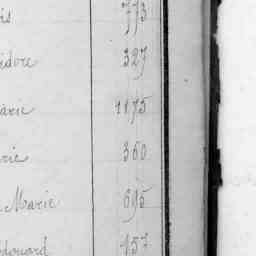 is 773
idore 327
arie 1175
rie 360
Marie 695
douard 157